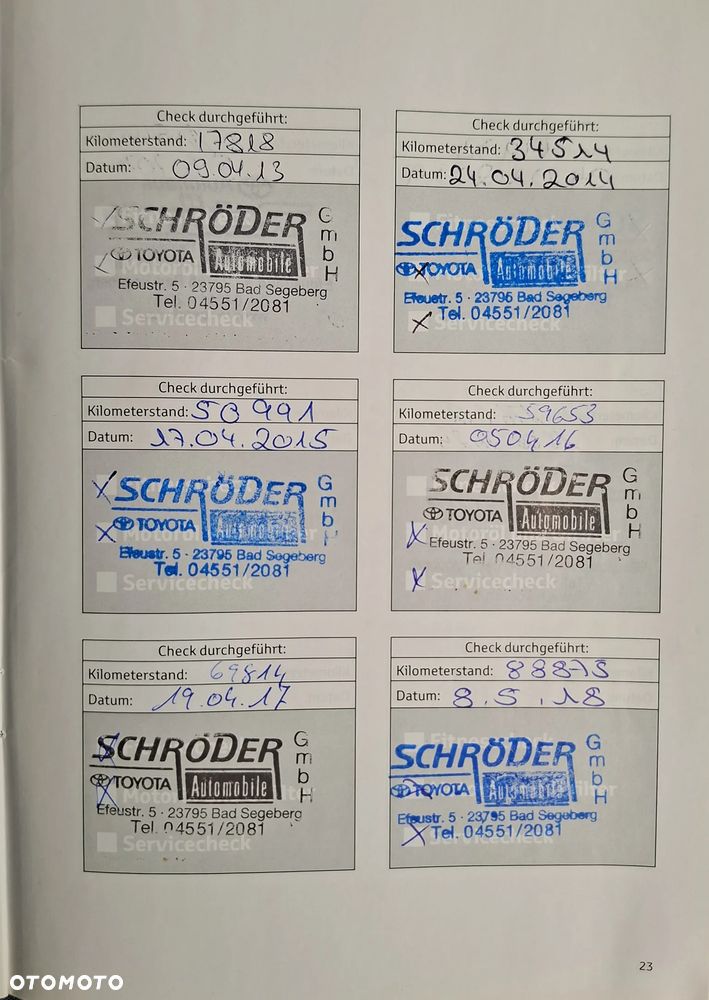 Check durchgeführt:
Kilometerstand: 17818
Datum: 09.04.13
SCHRÖDER GmbH
TOYOTA Automobile
Efeustr. 5 · 23795 Bad Segeberg
Tel. 04551/2081
Servicecheck
Check durchgeführt:
Kilometerstand: 34514
Datum: 24.04.2014
SCHRÖDER GmbH
TOYOTA Automobile
Efeustr. 5 · 23795 Bad Segeberg
Tel. 04551/2081
Servicecheck
Check durchgeführt:
Kilometerstand: 50991
Datum: 17.04.2015
SCHRÖDER GmbH
TOYOTA Automobile
Efeustr. 5 · 23795 Bad Segeberg
Tel. 04551/2081
Servicecheck
Check durchgeführt:
Kilometerstand: 59653
Datum: 050416
SCHRÖDER GmbH
TOYOTA Automobile
Efeustr. 5 · 23795 Bad Segeberg
Tel. 04551/2081
Servicecheck
Check durchgeführt:
Kilometerstand: 69814
Datum: 19.04.17
SCHRÖDER GmbH
TOYOTA Automobile
Efeustr. 5 · 23795 Bad Segeberg
Tel. 04551/2081
Servicecheck
Check durchgeführt:
Kilometerstand: 88875
Datum: 8.5.18
SCHRÖDER GmbH
TOYOTA Automobile
Efeustr. 5 · 23795 Bad Segeberg
Tel. 04551/2081
Servicecheck
23
OTOMOTO